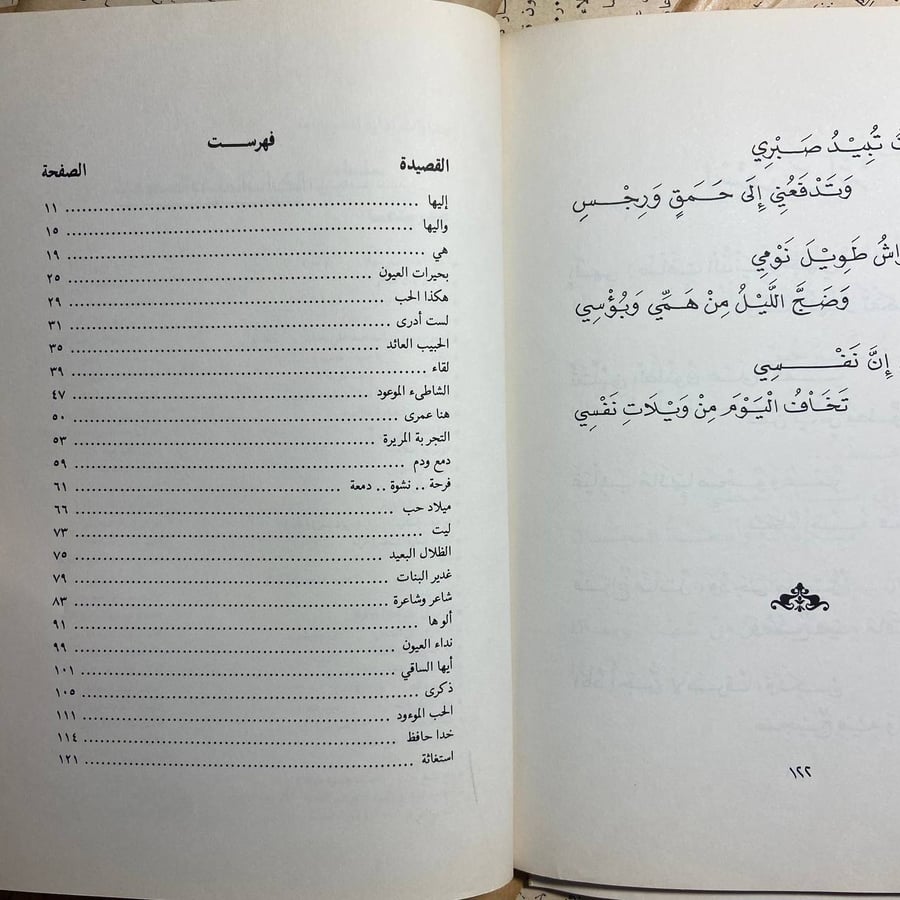 تُبِيْدُ صَبْرِي
وَتَدْفَعُنِي إِلَى حَمَقٍ وَرِجْسِ
طَوِيْلَ نَوْمِي
وَضَجَّ اللَّيْلُ مِنْ هَمِّي وَبُؤْسِي
إِنَّ نَفْسِي
تَخَافُ الْيَوْمَ مِنْ وَيْلَاتِ نَفْسِي
١٢٢
فهرست
القصيدة الصفحة
إليها ١١
واليها ١٥
هي ١٩
بحيرات العيون ٢٥
هكذا الحب ٢٩
لست أدرى ٣١
الحبيب العائد ٣٥
لقاء ٣٩
الشاطىء الموعود ٤٧
هنا عمرى ٥٠
التجربة المريرة ٥٣
دمع ودم ٥٩
فرحة .. نشوة .. دمعة ٦١
ميلاد حب ٦٦
ليت ٧٣
الظلال البعيد ٧٥
غدير البنات ٧٩
شاعر وشاعرة ٨٣
ألو ها ٩١
نداء العيون ٩٩
أيها الساقي ١٠١
ذكرى ١٠٥
الحب الموءود ١١١
خدا حافظ ١١٤
استغاثة ١٢١